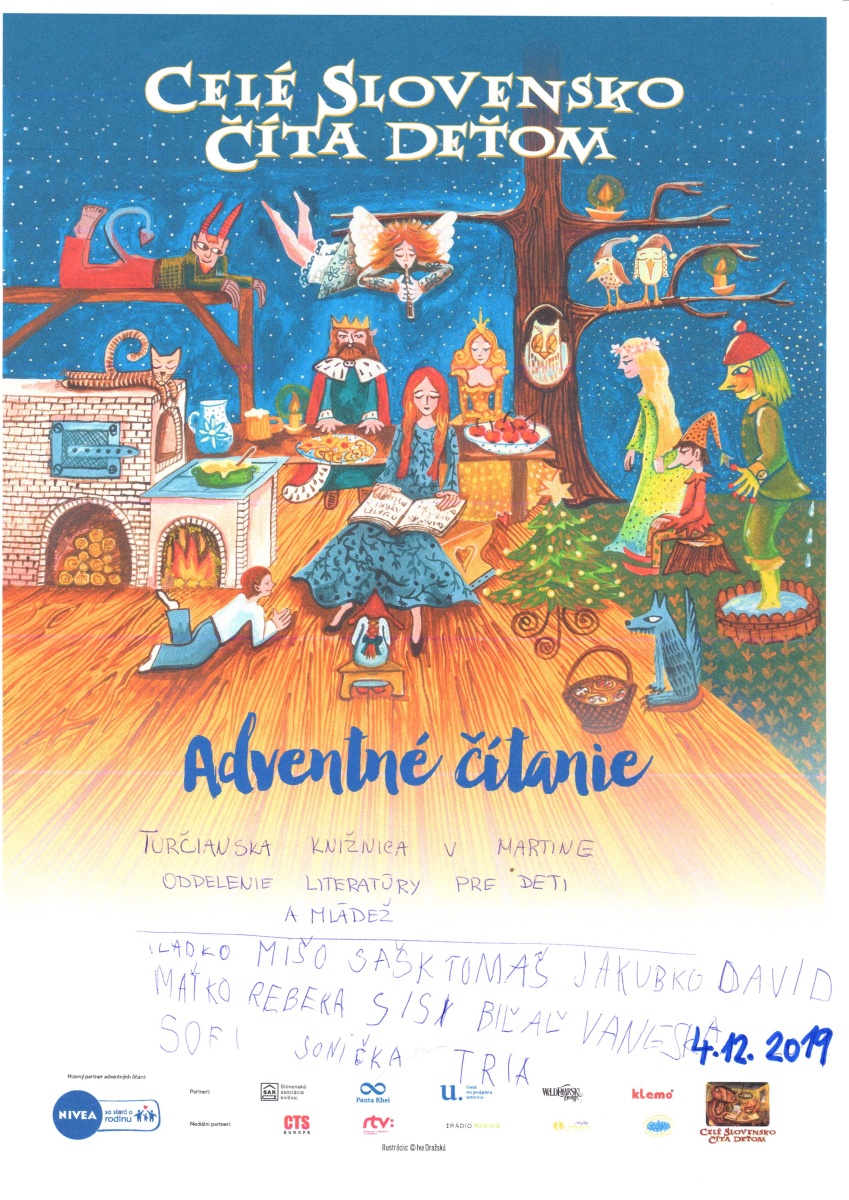 CELÉ SLOVENSKO
ČÍTA DEŤOM
Adventné čítanie
TURČIANSKA KNIŽNICA V MARTINE
ODDELENIE LITERATÚRY PRE DETI
A MLÁDEŽ
LADKO MIŠO SAŠK TOMAŠ JAKUBKO DAVID
MAŤKO REBEKA SISI BIĽAĽ VANESKA
SOFI SONIČKA TRIA
4.12.2019
Hlavný partner adventných čítaní:
NIVEA sa stará o rodinu
Partneri:
SAK Slovenská asociácia knižníc
Panta Rhei
u. fond na podporu umenia
klemo
Mediálni partneri:
CTS EUROPE
rtv:
RÁDIO REGINA
CELÉ SLOVENSKO
ČÍTA DEŤOM
Ilustrácia: © Iva Dražská